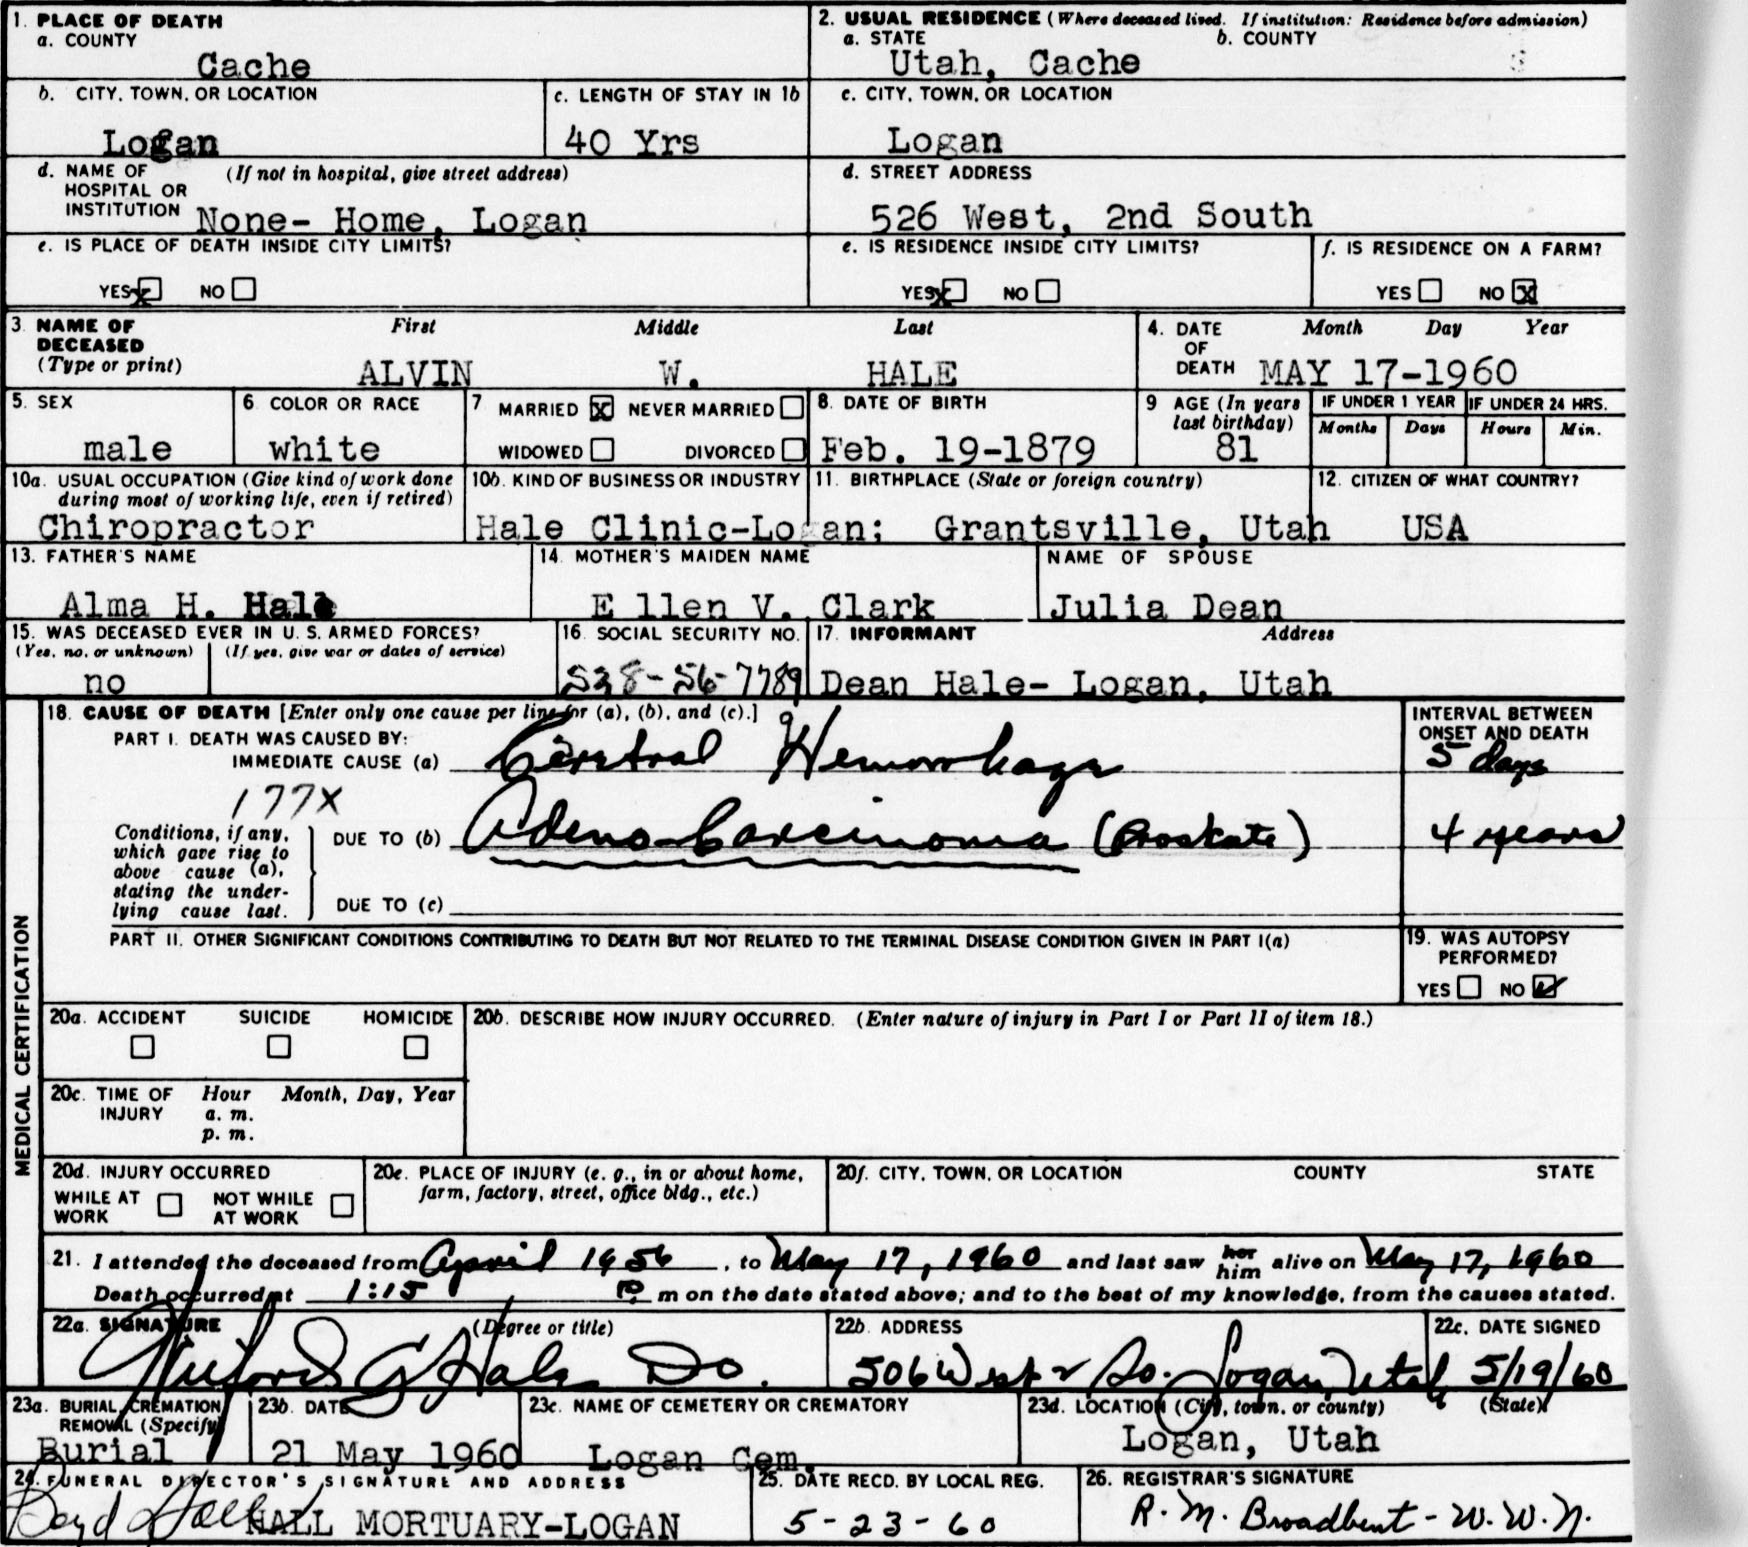 1. PLACE OF DEATH
a. COUNTY
Cache
2. USUAL RESIDENCE (Where deceased lived. If institution: Residence before admission)
a. STATE b. COUNTY
Utah, Cache
b. CITY, TOWN, OR LOCATION
Logan
c. LENGTH OF STAY IN 1b
40 Yrs
c. CITY, TOWN, OR LOCATION
Logan
d. NAME OF HOSPITAL OR INSTITUTION (If not in hospital, give street address)
None- Home, Logan
d. STREET ADDRESS
526 West, 2nd South
e. IS PLACE OF DEATH INSIDE CITY LIMITS?
YES x NO
e. IS RESIDENCE INSIDE CITY LIMITS?
YES x NO
f. IS RESIDENCE ON A FARM?
YES NO X
3. NAME OF DECEASED (Type or print)
First Middle Last
ALVIN W. HALE
4. DATE OF DEATH Month Day Year
MAY 17-1960
5. SEX
male
6. COLOR OR RACE
white
7 MARRIED X NEVER MARRIED
WIDOWED DIVORCED
8. DATE OF BIRTH
Feb. 19-1879
9 AGE (In years last birthday)
81
IF UNDER 1 YEAR
Months Days
IF UNDER 24 HRS.
Hours Min.
10a. USUAL OCCUPATION (Give kind of work done during most of working life, even if retired)
Chiropractor
10b. KIND OF BUSINESS OR INDUSTRY
Hale Clinic-Logan;
11. BIRTHPLACE (State or foreign country)
Grantsville, Utah
12. CITIZEN OF WHAT COUNTRY?
USA
13. FATHER'S NAME
Alma H. Hale
14. MOTHER'S MAIDEN NAME
E llen V. Clark
NAME OF SPOUSE
Julia Dean
15. WAS DECEASED EVER IN U. S. ARMED FORCES?
(Yes, no, or unknown) (If yes, give war or dates of service)
no
16. SOCIAL SECURITY NO.
538-56-7789
17. INFORMANT Address
Dean Hale- Logan, Utah
MEDICAL CERTIFICATION
18. CAUSE OF DEATH [Enter only one cause per line for (a), (b), and (c).]
PART I. DEATH WAS CAUSED BY:
IMMEDIATE CAUSE (a) Cerebral Hemorrhage
177X
Conditions, if any, which gave rise to above cause (a), stating the underlying cause last.
DUE TO (b) Adeno-Carcinoma (Prostate)
DUE TO (c)
INTERVAL BETWEEN ONSET AND DEATH
5 days
4 years
PART II. OTHER SIGNIFICANT CONDITIONS CONTRIBUTING TO DEATH BUT NOT RELATED TO THE TERMINAL DISEASE CONDITION GIVEN IN PART I(a)
19. WAS AUTOPSY PERFORMED?
YES NO
20a. ACCIDENT SUICIDE HOMICIDE
20b. DESCRIBE HOW INJURY OCCURRED. (Enter nature of injury in Part I or Part II of item 18.)
20c. TIME OF INJURY Hour Month, Day, Year
a. m.
p. m.
20d. INJURY OCCURRED
WHILE AT WORK NOT WHILE AT WORK
20e. PLACE OF INJURY (e. g., in or about home, farm, factory, street, office bldg., etc.)
20f. CITY, TOWN, OR LOCATION COUNTY STATE
21. I attended the deceased from April 1956, to May 17, 1960 and last saw her him alive on May 17, 1960
Death occurred at 1:15 P. m on the date stated above; and to the best of my knowledge, from the causes stated.
22a. SIGNATURE (Degree or title)
G Hale DO.
22b. ADDRESS
506 West 2 So. Logan, Utah
22c. DATE SIGNED
5/19/60
23a. BURIAL, CREMATION REMOVAL (Specify)
Burial
23b. DATE
21 May 1960
23c. NAME OF CEMETERY OR CREMATORY
Logan Cem.
23d. LOCATION (City, town, or county) (State)
Logan, Utah
24. FUNERAL DIRECTOR'S SIGNATURE AND ADDRESS
Boyd Hall HALL MORTUARY-LOGAN
25. DATE RECD. BY LOCAL REG.
5-23-60
26. REGISTRAR'S SIGNATURE
R. M. Broadbent - W. W. N.